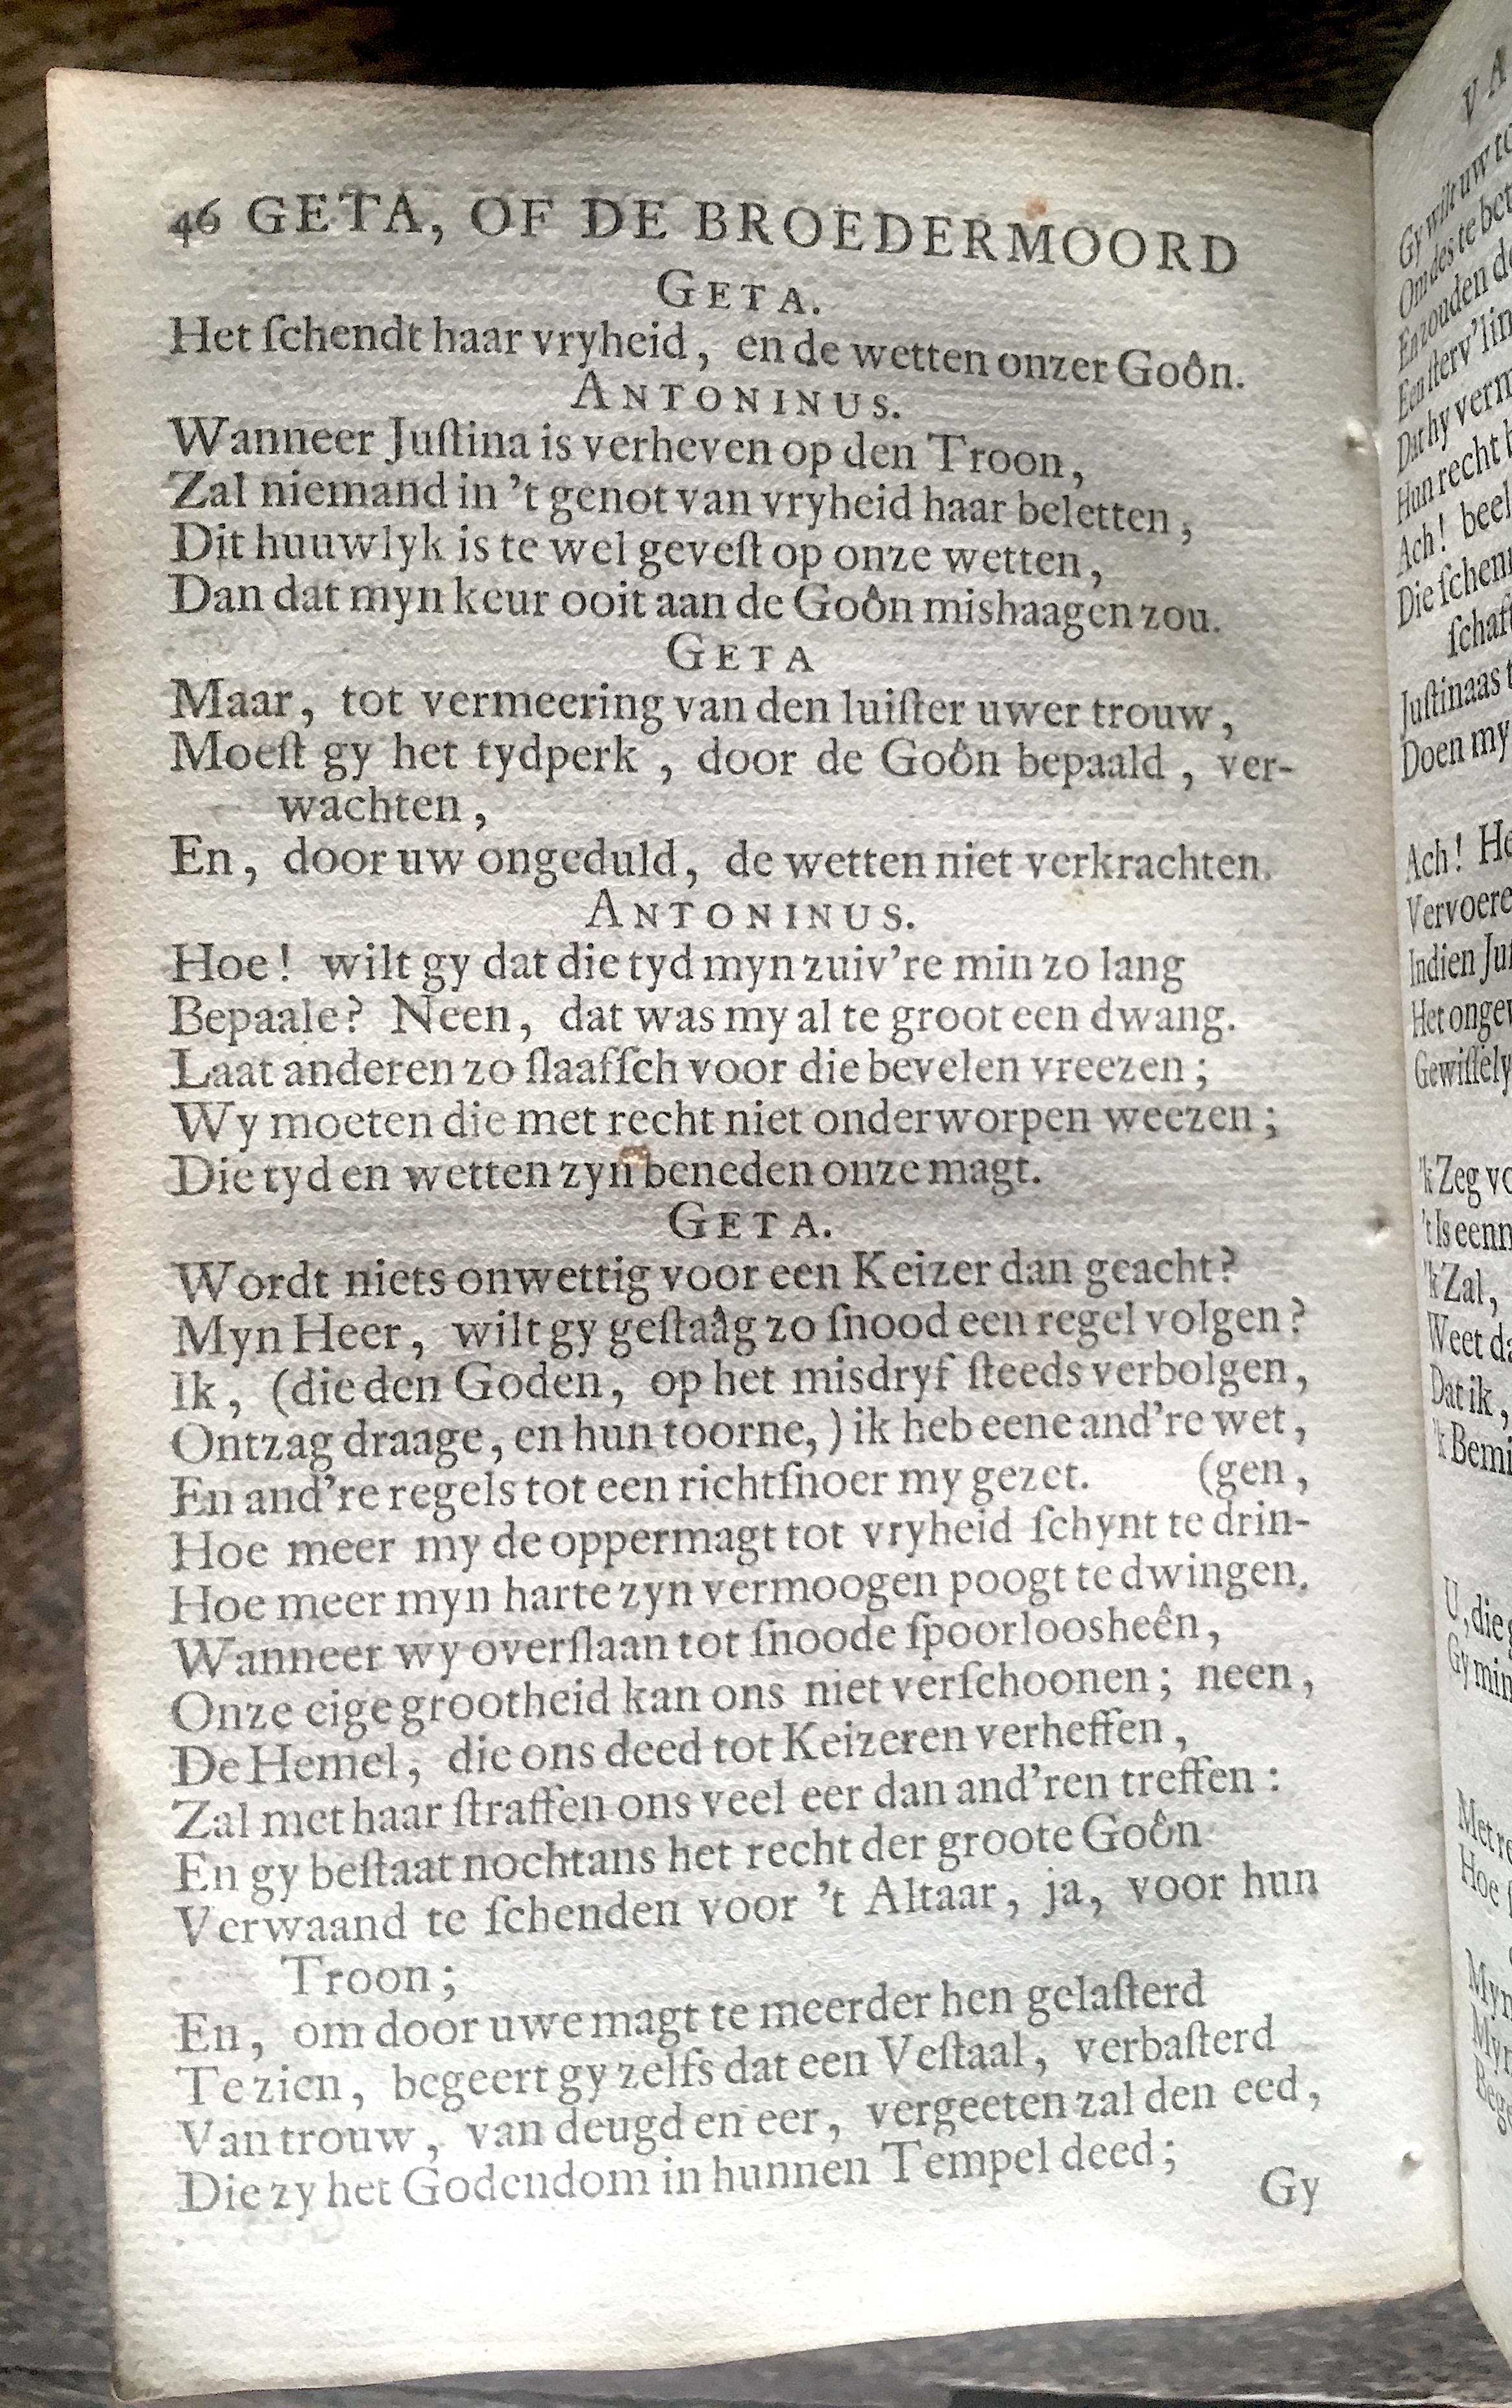 46 GETA, OF DE BROEDERMOORD
GETA.
Het ſchendt haar vryheid, en de wetten onzer Goôn.
ANTONINUS.
Wanneer Juſtina is verheven op den Troon,
Zal niemand in 't genot van vryheid haar beletten,
Dit huuwlyk is te wel geveſt op onze wetten,
Dan dat myn keur ooit aan de Goôn mishaagen zou.
GETA
Maar, tot vermeering van den luiſter uwer trouw,
Moeſt gy het tydperk, door de Goôn bepaald, ver-
wachten,
En, door uw ongeduld, de wetten niet verkrachten.
ANTONINUS.
Hoe! wilt gy dat die tyd myn zuiv're min zo lang
Bepaale? Neen, dat was my al te groot een dwang.
Laat anderen zo ſlaafſch voor die bevelen vreezen;
Wy moeten die met recht niet onderworpen weezen;
Die tyd en wetten zyn beneden onze magt.
GETA.
Wordt niets onwettig voor een Keizer dan geacht?
Myn Heer, wilt gy geſtaâg zo ſnood een regel volgen?
Ik, (die den Goden, op het misdryf ſteeds verbolgen,
Ontzag draage, en hun toorne,) ik heb eene and're wet,
En and're regels tot een richtſnoer my gezet. (gen,
Hoe meer my de oppermagt tot vryheid ſchynt te drin-
Hoe meer myn harte zyn vermoogen poogt te dwingen.
Wanneer wy overſlaan tot ſnoode ſpoorloosheên,
Onze eige grootheid kan ons niet verſchoonen; neen,
De Hemel, die ons deed tot Keizeren verheffen,
Zal met haar ſtraffen ons veel eer dan and'ren treffen:
En gy beſtaat nochtans het recht der groote Goôn
Verwaand te ſchenden voor 't Altaar, ja, voor hun
Troon;
En, om door uwe magt te meerder hen gelaſterd
Te zien, begeert gy zelfs dat een Veſtaal, verbaſterd
Van trouw, van deugd en eer, vergeeten zal den eed,
Die zy het Godendom in hunnen Tempel deed;
Gy